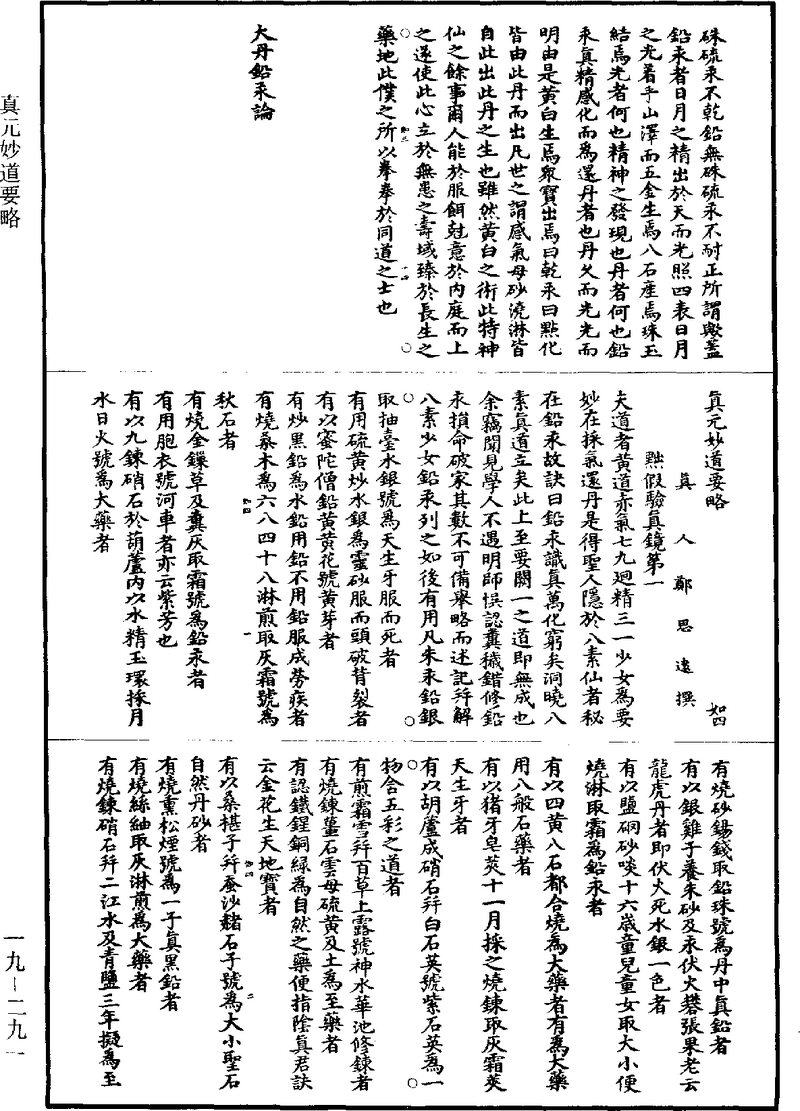 真元妙道要略
一九-二九一
硃硫汞不乾鉛無硃硫汞不耐正所謂歟蓋
鉛汞者日月之精出於天而光照四表日月
之光着乎山澤而五金生焉八石產焉珠玉
結焉光者何也精神之發現也丹者何也鉛
汞真精感化而為還丹者也丹父而光光而
明由是黃白生焉眾寶出焉曰乾汞曰點化
皆由此丹而出凡世之謂感氣母砂澆淋皆
自此出此丹之生也雖然黃白之術此特神
仙之餘事爾人能於服餌尅意於內庭而上
之遂使此心立於無患之壽域臻於長生之
藥地此僕之所以拳拳於同道之士也
大丹鉛汞論
真元妙道要略 如四
真人鄭思遠撰
黜假驗真鏡第一
夫道者黃道赤氣七九迴精三一少女為要
妙在採氣還丹是得聖人隱於八素仙者秘
在鉛汞故訣曰鉛汞識真萬化窮矣洞曉八
素真道立矣此上至要闕一之道即無成也
余竊聞見學人不遇明師悮認糞穢錯修鉛
汞損命破家其數不可備舉略而述記并解
八素少女鉛汞列之如後有用凡朱汞鉛銀
取抽臺水銀號為天生牙服而死者
有用硫黃炒水銀為靈砂服而頭破背裂者
有以蜜陀僧鉛黃黃花號黃芽者
有炒黑鉛為水鉛用鉛不用鉛服成勞疾者
有燒桑木為六八四十八淋煎取灰霜號為
秋石者
有燒金鏁草及糞灰取霜號為鉛汞者
有用胞衣號河車者亦云紫芳也
有以九鍊硝石於葫蘆內以水精玉環採月
水日火號為大藥者
有燒砂錫錢取鉛珠號為丹中真鉛者
有以銀雞子養朱砂及汞伏火礬張果老云
龍虎丹者即伏火死水銀一色者
有以鹽硇砂啖十六歲童兒童女取大小便
燒淋取霜為鉛汞者
有以四黃八石都合燒為大藥者有為大藥
用八般石藥者
有以猪牙皂莢十一月採之燒鍊取灰霜莢
天生牙者
有以胡蘆成硝石并白石英號紫石英為一
物合五彩之道者
有煎霜雪并百草上露號神水華池修鍊者
有燒鍊薑石雲母硫黃及土為至藥者
有認鐵鋥銅綠為自然之藥便指陰真君訣
云金花生天地寶者
有以桑椹子并蚕沙赭石子號為大小聖石
自然丹砂者
有燒熏松煙號為一子真黑鉛者
有燒絲紬取灰淋煎為大藥者
有燒鍊硝石并二江水及青鹽三年擬為至